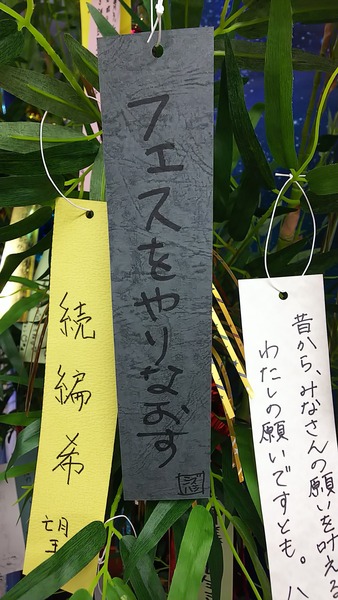 昔から、みなさんの願いを叶える
わたしの願いですとも。
フェスをやりなおす
続編希望